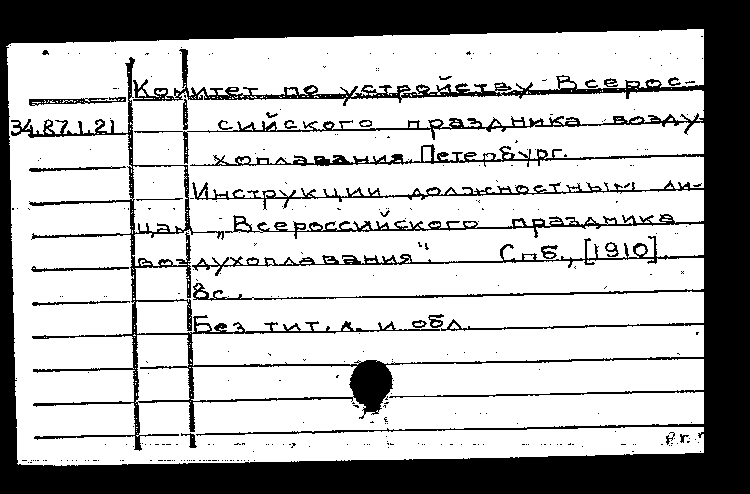 Комитет по устройству Всерос-
34.87.1.21 сийского праздника возду-
хоплавания. Петербург.
Инструкции должностным ли-
цам „Всероссийского праздника
воздухоплавания". Спб., [1910].
8с.
Без тит. л. и обл.